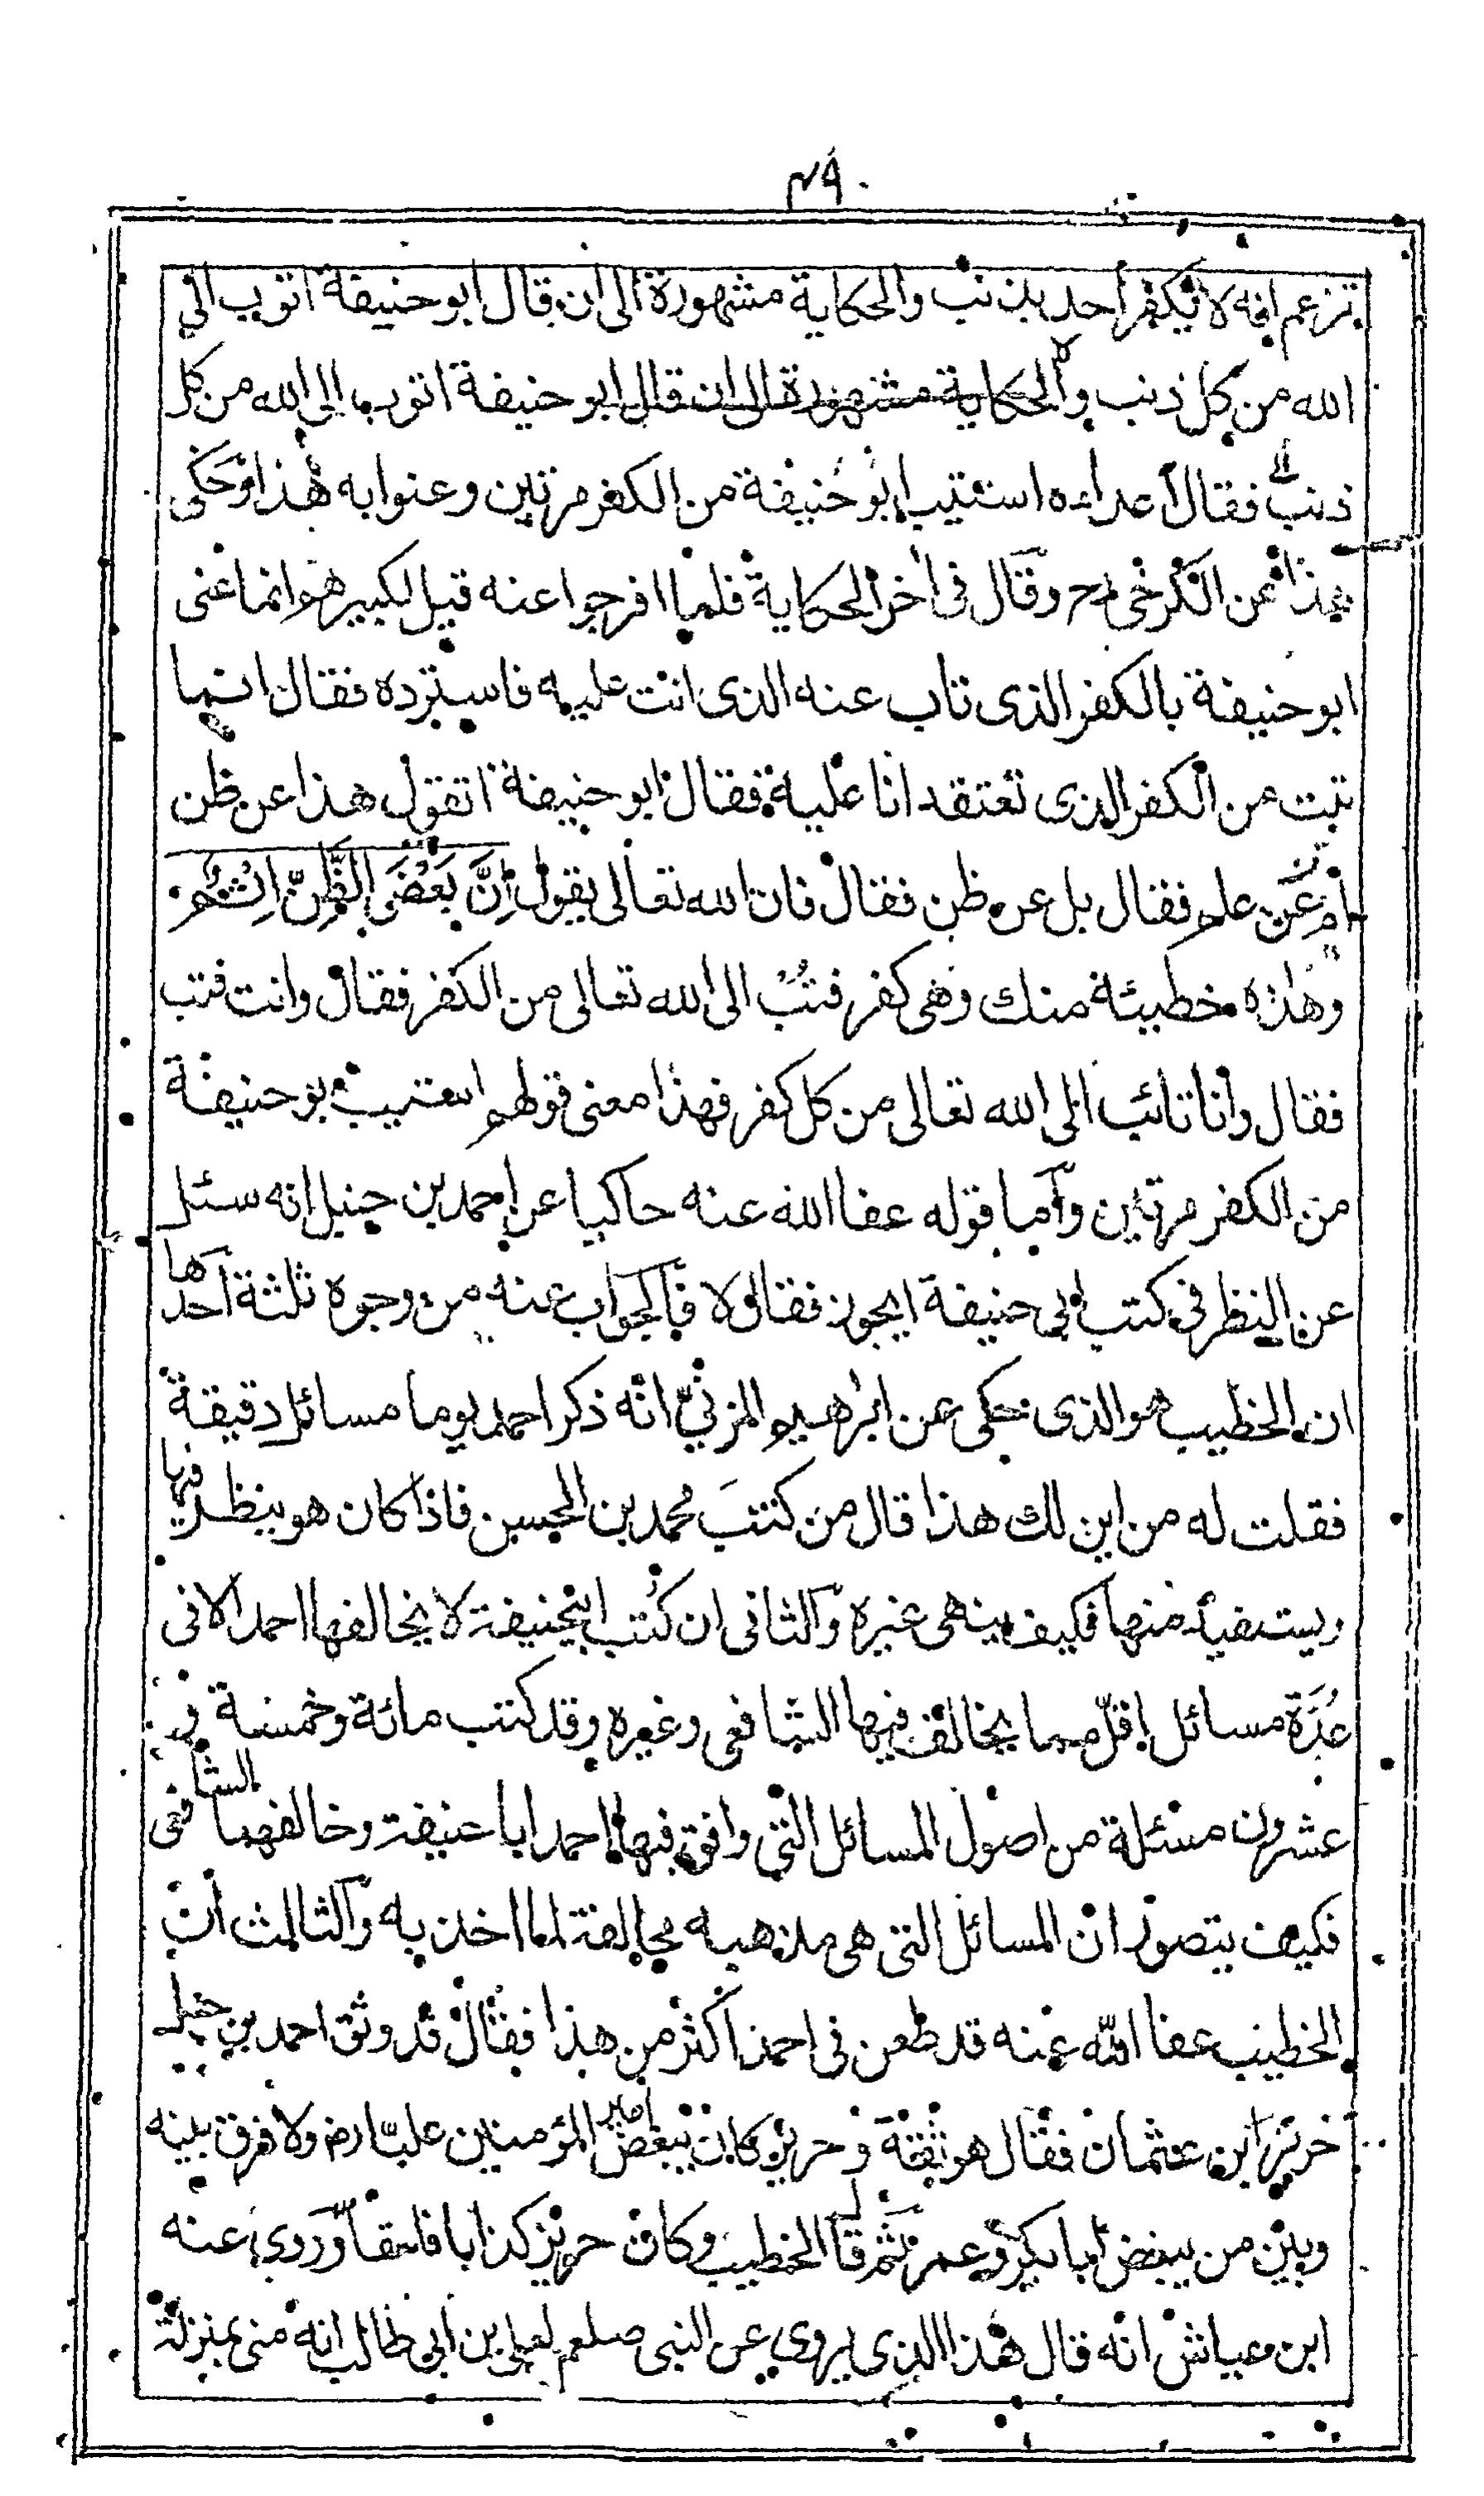 ٤٩
تزعم انه لا يكفر احد بذنب والحكاية مشهورة الى ان قال ابو حنيفة اتوب الى
الله من كل ذنب والحكاية مشهورة الى ان قال ابو حنيفة اتوب الى الله من كل
ذنب فقال اعداءه استتيب ابو حنيفة من الكفر مرتين وعنوا به هذا وحكى
هذا عن الكرخى رح وقال فى اخر الحكاية فلما افرجوا عنه قيل لكبيرهم انما عنى
ابو حنيفة بالكفر الذى تاب عنه الذى انت عليه فاسترده فقال انما
تبت من الكفر الذى تعتقد انا عليه فقال ابو حنيفة اتقول هذا عن ظن
ام عن علم فقال بل عن ظن فقال فان الله تعالى يقول اِنَّ بَعْضَ الظَّنِّ اِثْمٌ
وهذه خطيئة منك وهى كفر فتب الى الله تعالى من الكفر فقال وانت فتب
فقال وانا تائب الى الله تعالى من كل كفر فهذا معنى قولهم استتيب ابو حنيفة
من الكفر مرتين واما قوله عفا الله عنه حاكيا عن احمد بن حنبل انه سئل
عن النظر فى كتب ابى حنيفة ايجوز فقال لا فالجواب عنه من وجوه ثلثة احدها
ان الخطيب هو الذى حكى عن ابرهيم المزنى انه ذكر احمد يوما مسائل دقيقة
فقلت له من اين لك هذا قال من كتب محمد بن الحسن فاذا كان هو ينظر فيها
ويستفيد منها فكيف ينهى غيره والثانى ان كتب ابيحنيفة لا يخالفها احمد الا فى
عدة مسائل اقل مما يخالف فيها الشافعى وغيره وقد كتب مائة وخمسة و
عشرون مسئلة من اصول المسائل التى وافق فيها احمد ابا حنيفة وخالفهما الشافعى
فكيف يتصور ان المسائل التى هى مذهبه مخالفة لما اخذ به والثالث ان
الخطيب عفا الله عنه قد طعن فى احمد اكثر من هذا فقال قد وثق احمد بن حنبل
حريز بن عثمان فقال هو ثقة وحريز كان يبغض امير المؤمنين عليا رض ولا فرق بينه
وبين من يبغض ابا بكر وعمر ثم قال الخطيب وكان حريز كذابا فاسقا وروى عنه
ابن عياش انه قال هذا الذى يروى عن النبى صلعم لعلى بن ابى طالب انه منى بمنزلة